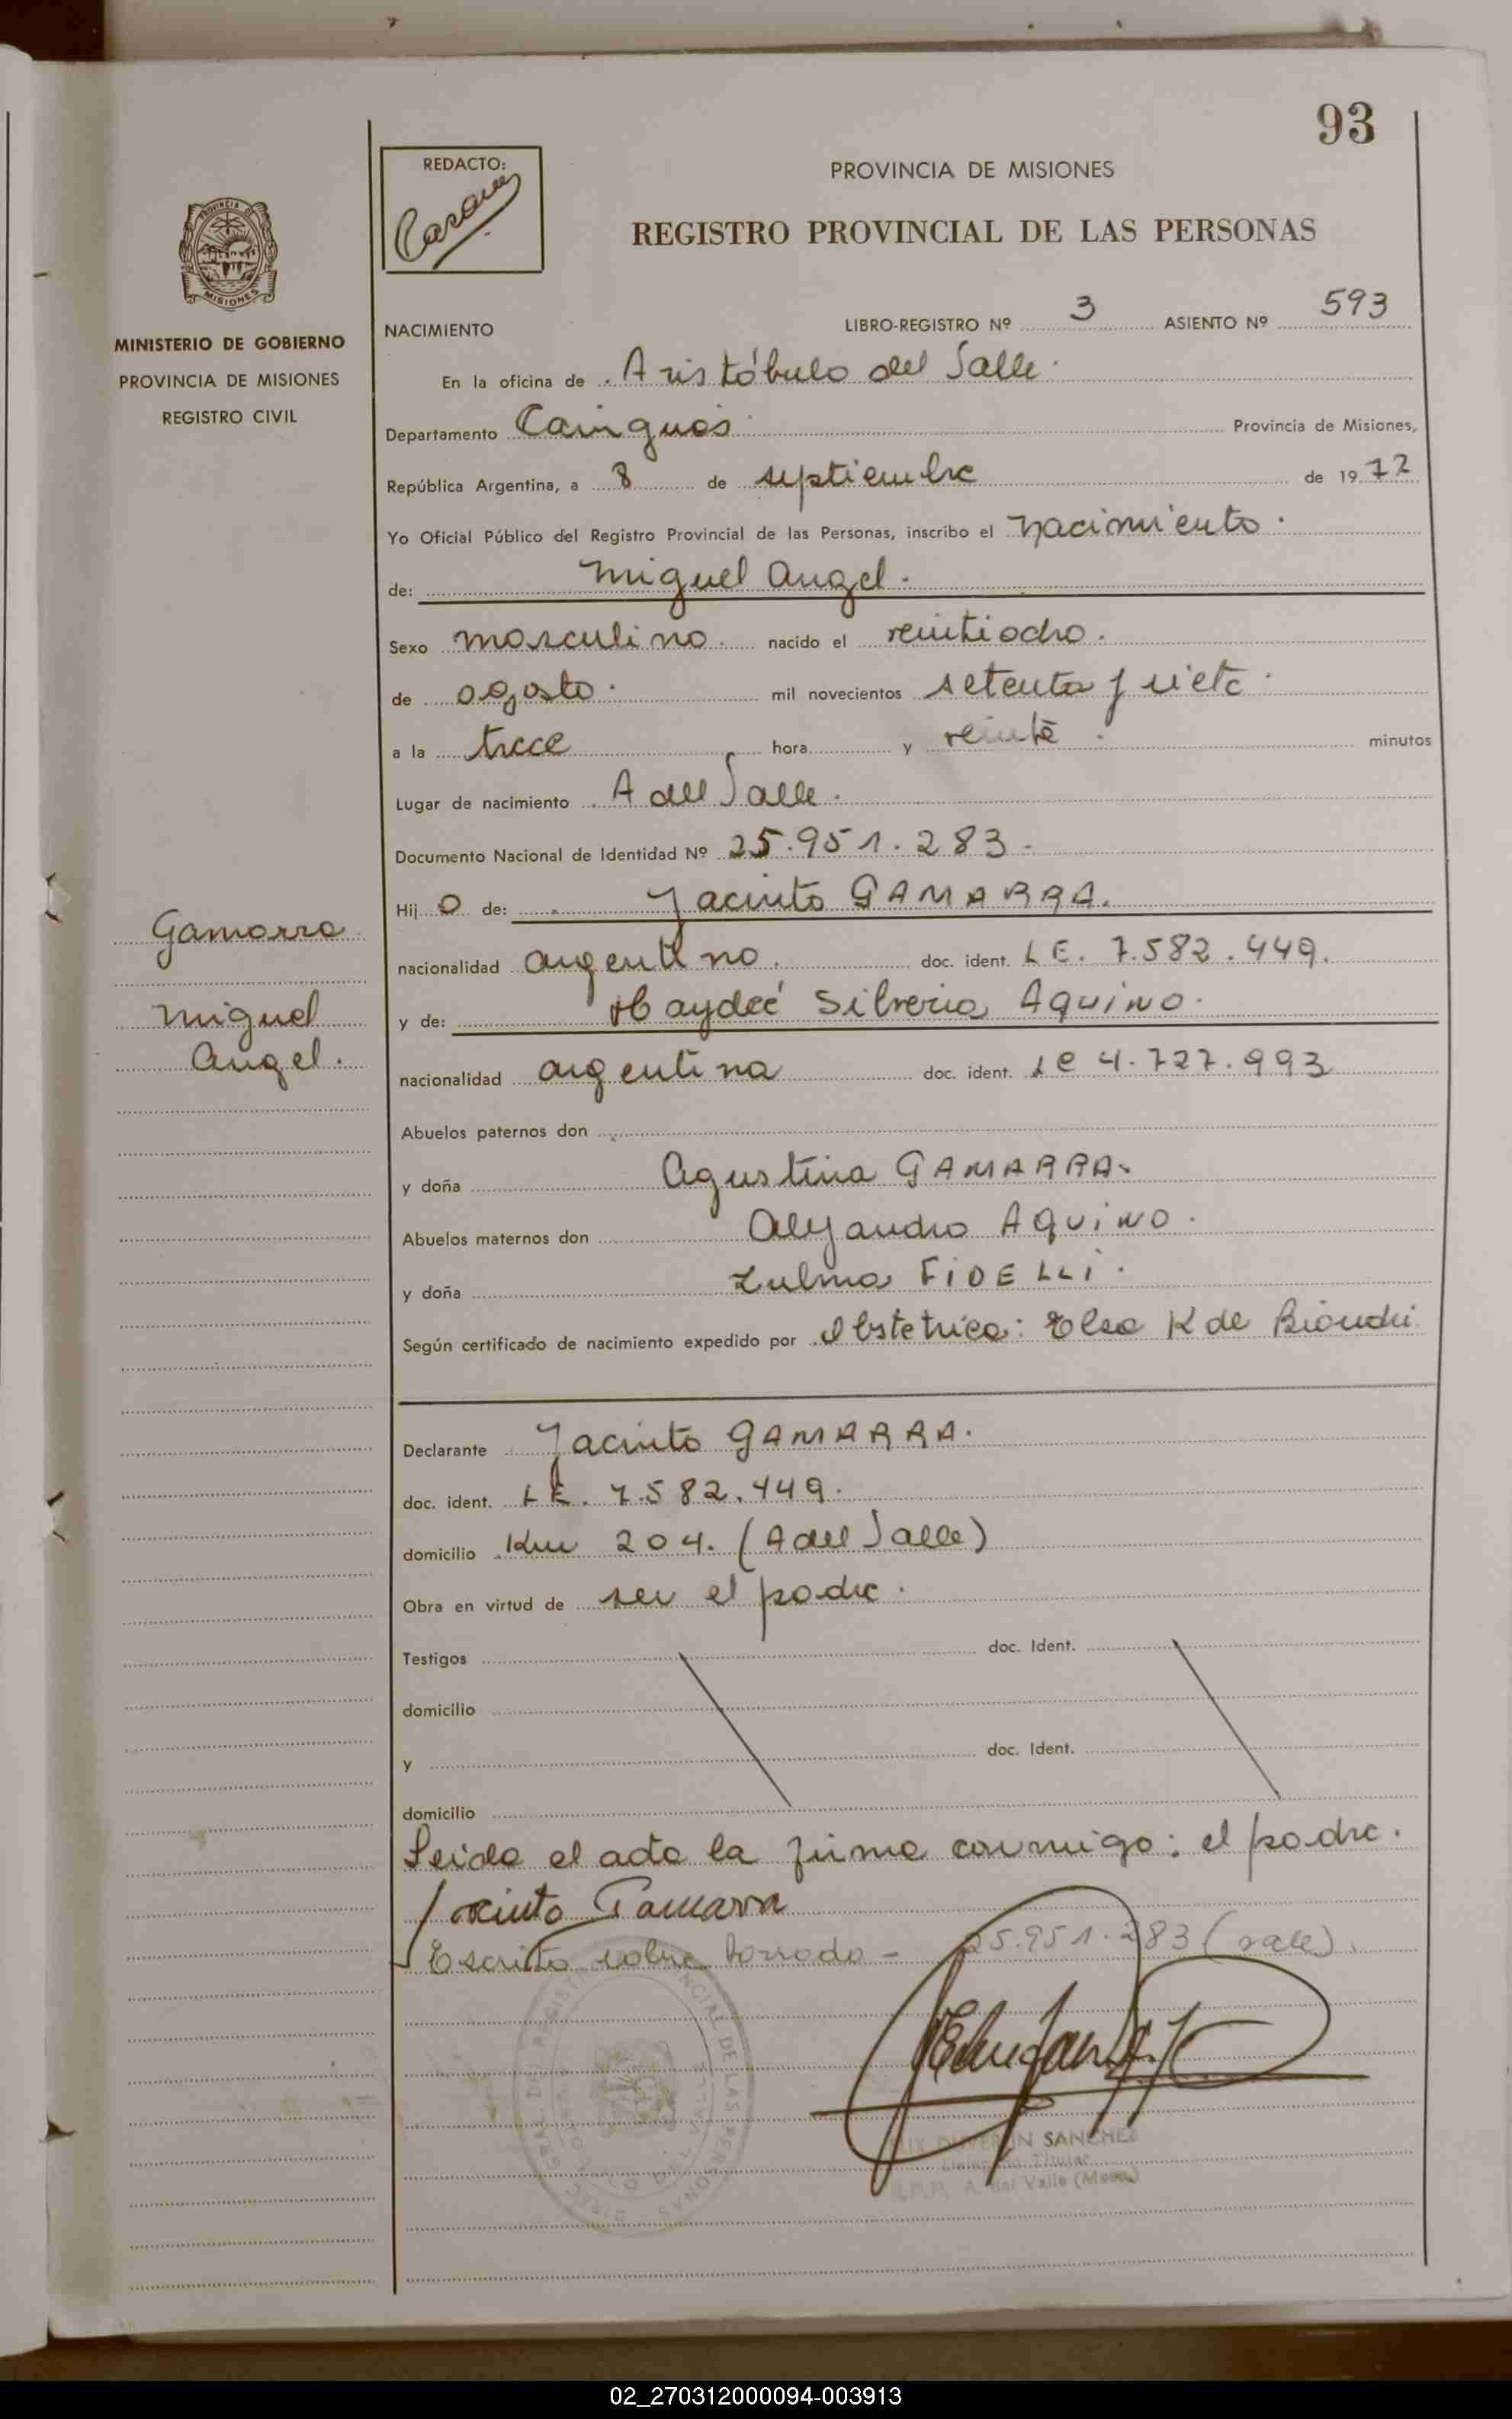 93
REDACTO:
PROVINCIA DE MISIONES
REGISTRO PROVINCIAL DE LAS PERSONAS
PROVINCIA DE
MISIONES
MINISTERIO DE GOBIERNO
PROVINCIA DE MISIONES
REGISTRO CIVIL
NACIMIENTO
LIBRO-REGISTRO Nº 3 ASIENTO Nº 593
En la oficina de Aristóbulo del Valle.
Departamento Cainguás. Provincia de Misiones,
República Argentina, a 8 de septiembre de 1977
Yo Oficial Público del Registro Provincial de las Personas, inscribo el nacimiento.
de: Miguel Angel.
Sexo masculino. nacido el veintiocho.
de agosto. mil novecientos setenta y siete.
a la trece hora y veinte. minutos
Lugar de nacimiento A del Valle.
Documento Nacional de Identidad Nº 25.951.283.
Hij o de: Jacinto GAMARRA.
nacionalidad argentino. doc. ident. L E. 7.582.449.
y de: Haydeé Silveria AQUINO.
nacionalidad argentina doc. ident. L C 4.727.993
Gamarra
Miguel
Angel.
Abuelos paternos don
y doña Agustina GAMARRA.
Abuelos maternos don Alejandro AQUINO.
y doña Zulma FIDELLI.
Según certificado de nacimiento expedido por Obstetrica: Elsa K de Bianchi
Declarante Jacinto GAMARRA.
doc. ident. L E. 7.582.449.
domicilio Km 204. (A del Valle)
Obra en virtud de ser el padre.
Testigos doc. Ident.
domicilio
y doc. Ident.
domicilio
Leida el acta la firma conmigo: el padre.
Jacinto Gamarra
Escrito sobre borrado - 25.951.283 (vale).
SANCHEZ
Titular
A. del Valle (Mnes.)
02_270312000094-003913